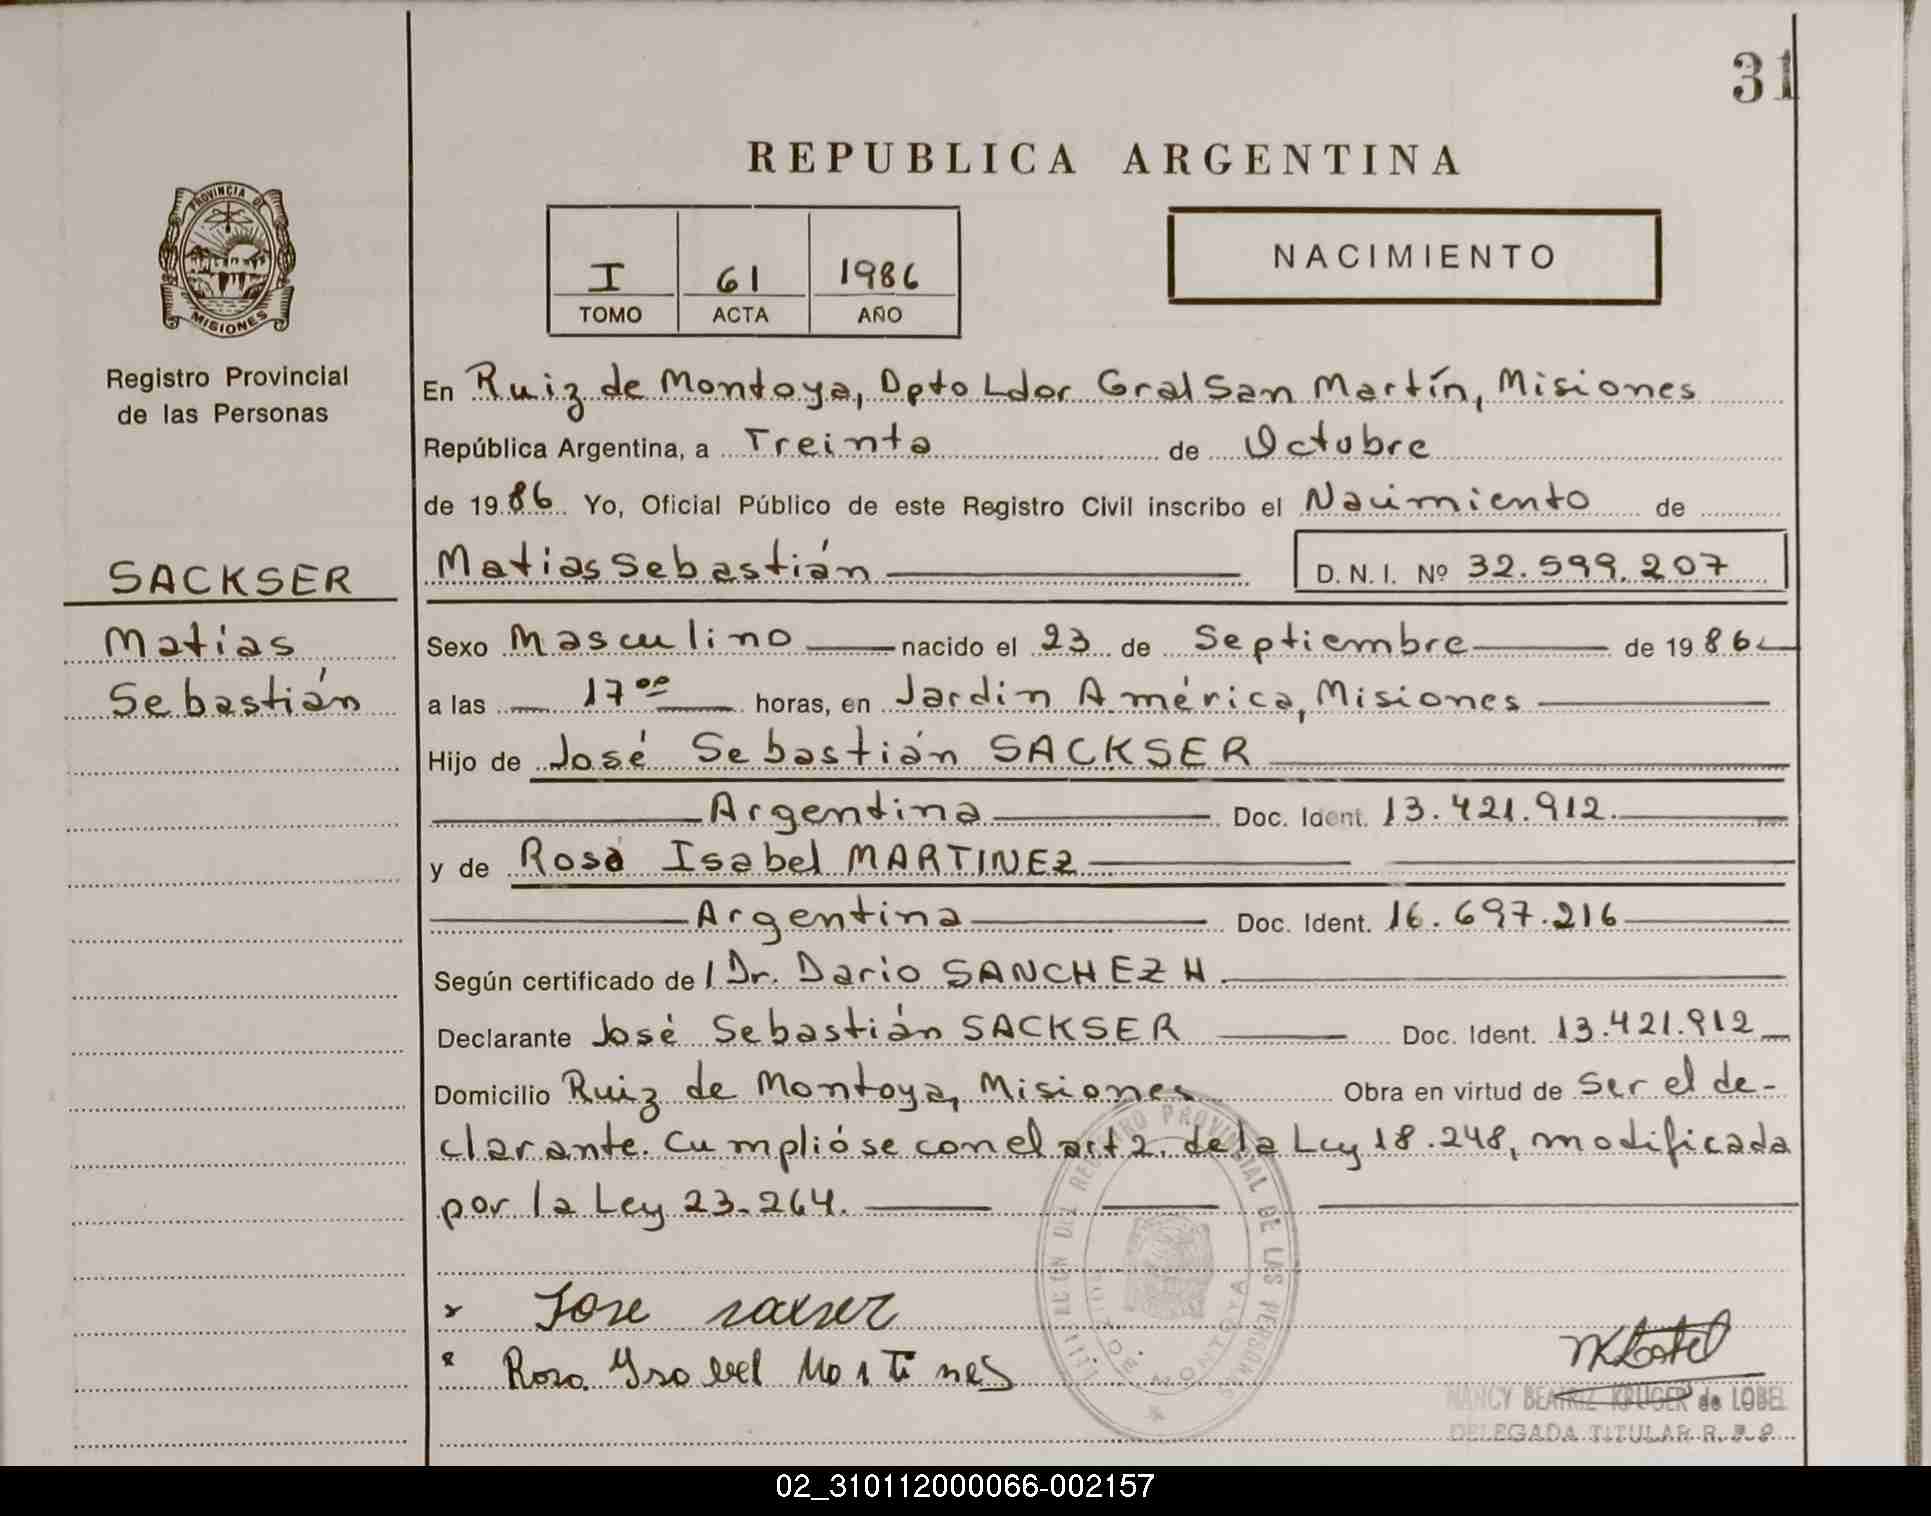 31
REPUBLICA ARGENTINA
PROVINCIA DE
MISIONES
Registro Provincial
de las Personas
I 61 1986
TOMO ACTA AÑO
NACIMIENTO
En Ruiz de Montoya, Dpto Ldor Gral San Martín, Misiones
República Argentina, a Treinta de Octubre
de 1986 Yo, Oficial Público de este Registro Civil inscribo el Nacimiento de
Matias Sebastián D.N.I. Nº 32.599.207
SACKSER
Matías
Sebastián
Sexo Masculino nacido el 23 de Septiembre de 1986
a las 17 00 horas, en Jardin América, Misiones
Hijo de José Sebastián SACKSER
Argentina Doc. Ident. 13.421.912.
y de Rosa Isabel MARTINEZ
Argentina Doc. Ident. 16.697.216
Según certificado de l Dr. Dario SANCHEZ H
Declarante José Sebastián SACKSER Doc. Ident. 13.421.912
Domicilio Ruiz de Montoya, Misiones Obra en virtud de Ser el de-
clarante. Cumplióse con el art 2. de la Ley 18.248, modificada
por la Ley 23.264.
DEL REGISTRO PROVINCIAL DE LAS PERSONAS
DE MONTOYA
x Jose sacser
x Rosa Ysabel Martines
NANCY BEATRIZ KRUGER de LOBEL
DELEGADA TITULAR R. P. P.
02_310112000066-002157